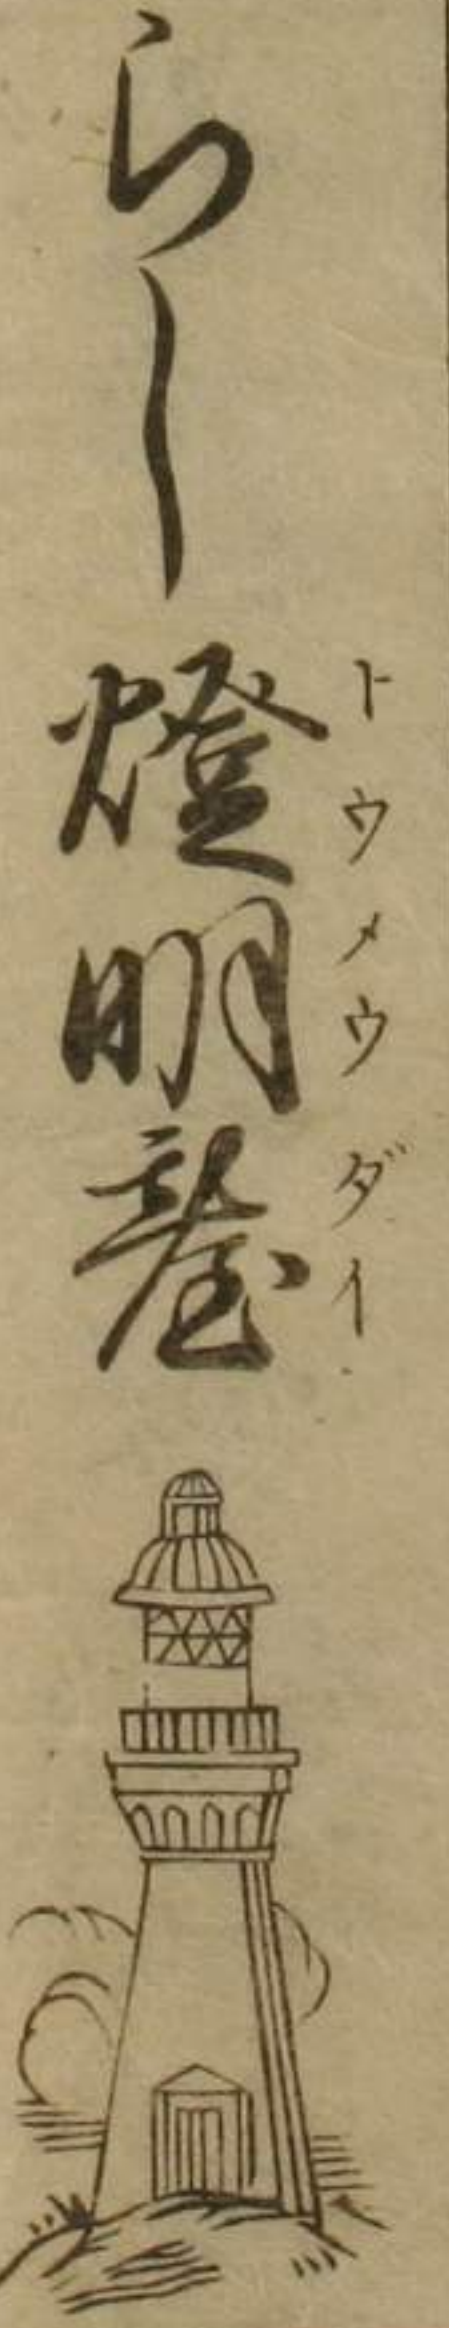 らし燈明䑓
トウメウダイ